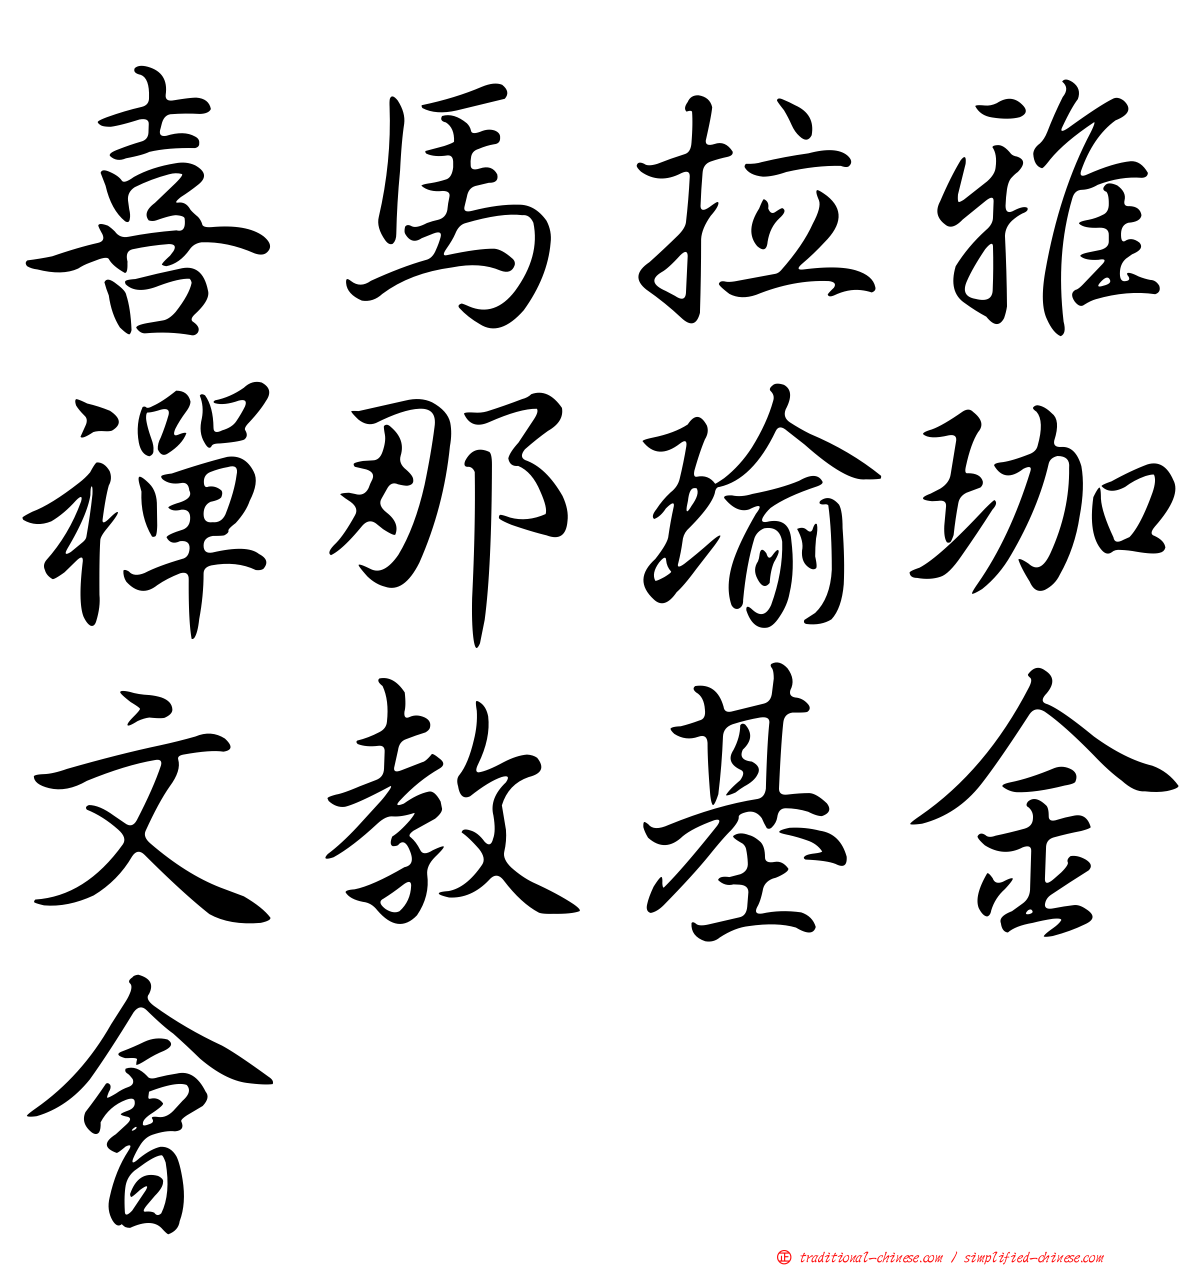 喜馬拉雅
禪那瑜珈
文教基金
會
正 traditional-chinese.com / simplified-chinese.com